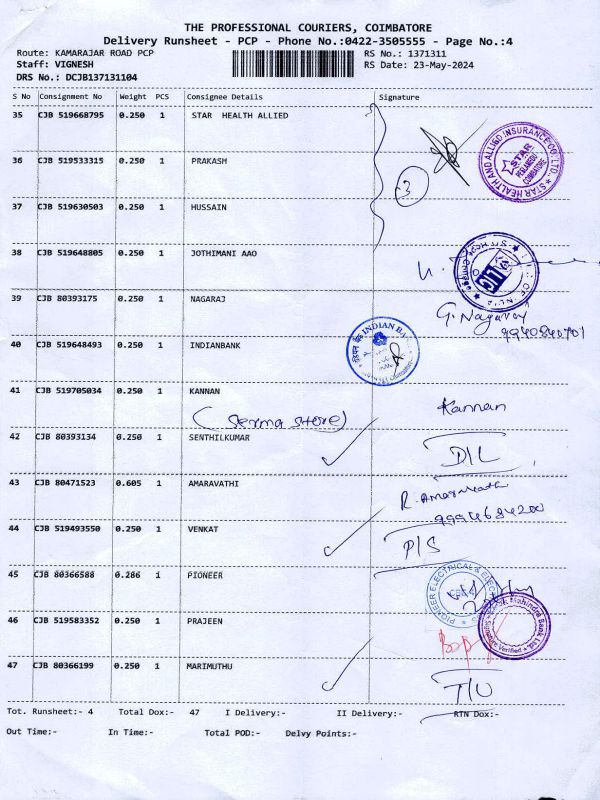 THE PROFESSIONAL COURIERS, COIMBATORE
Delivery Runsheet - PCP - Phone No.:0422-3505555 - Page No.:4
Route: KAMARAJAR ROAD PCP RS No.: 1371311
Staff: VIGNESH RS Date: 23-May-2024
DRS No.: DCJB137131104
S No Consignment No Weight PCS Consignee Details Signature
35 CJB 519668795 0.250 1 STAR HEALTH ALLIED
STAR HEALTH AND ALLIED INSURANCE CO. LTD.
STAR
COIMBATORE
36 CJB 519533315 0.250 1 PRAKASH
3
37 CJB 519630503 0.250 1 HUSSAIN
38 CJB 519648805 0.250 1 JOTHIMANI AAO
LIC
39 CJB 80393175 0.250 1 NAGARAJ
G. Nagaraj
9940840701
40 CJB 519648493 0.250 1 INDIANBANK
INDIAN BA
41 CJB 519705034 0.250 1 KANNAN
Kannan
(Serma store)
42 CJB 80393134 0.250 1 SENTHILKUMAR
D/L
43 CJB 80471523 0.605 1 AMARAVATHI
R. Amaravathi
9994684200
44 CJB 519493550 0.250 1 VENKAT
P/S
45 CJB 80366588 0.286 1 PIONEER
PIONEER ELECTRICAL & ELEC
46 CJB 519583352 0.250 1 PRAJEEN
Mahindra Bank Ltd.
Verified
47 CJB 80366199 0.250 1 MARIMUTHU
T/U
Tot. Runsheet:- 4 Total Dox:- 47 I Delivery:- II Delivery:- RTN Dox:-
Out Time:- In Time:- Total POD:- Delvy Points:-